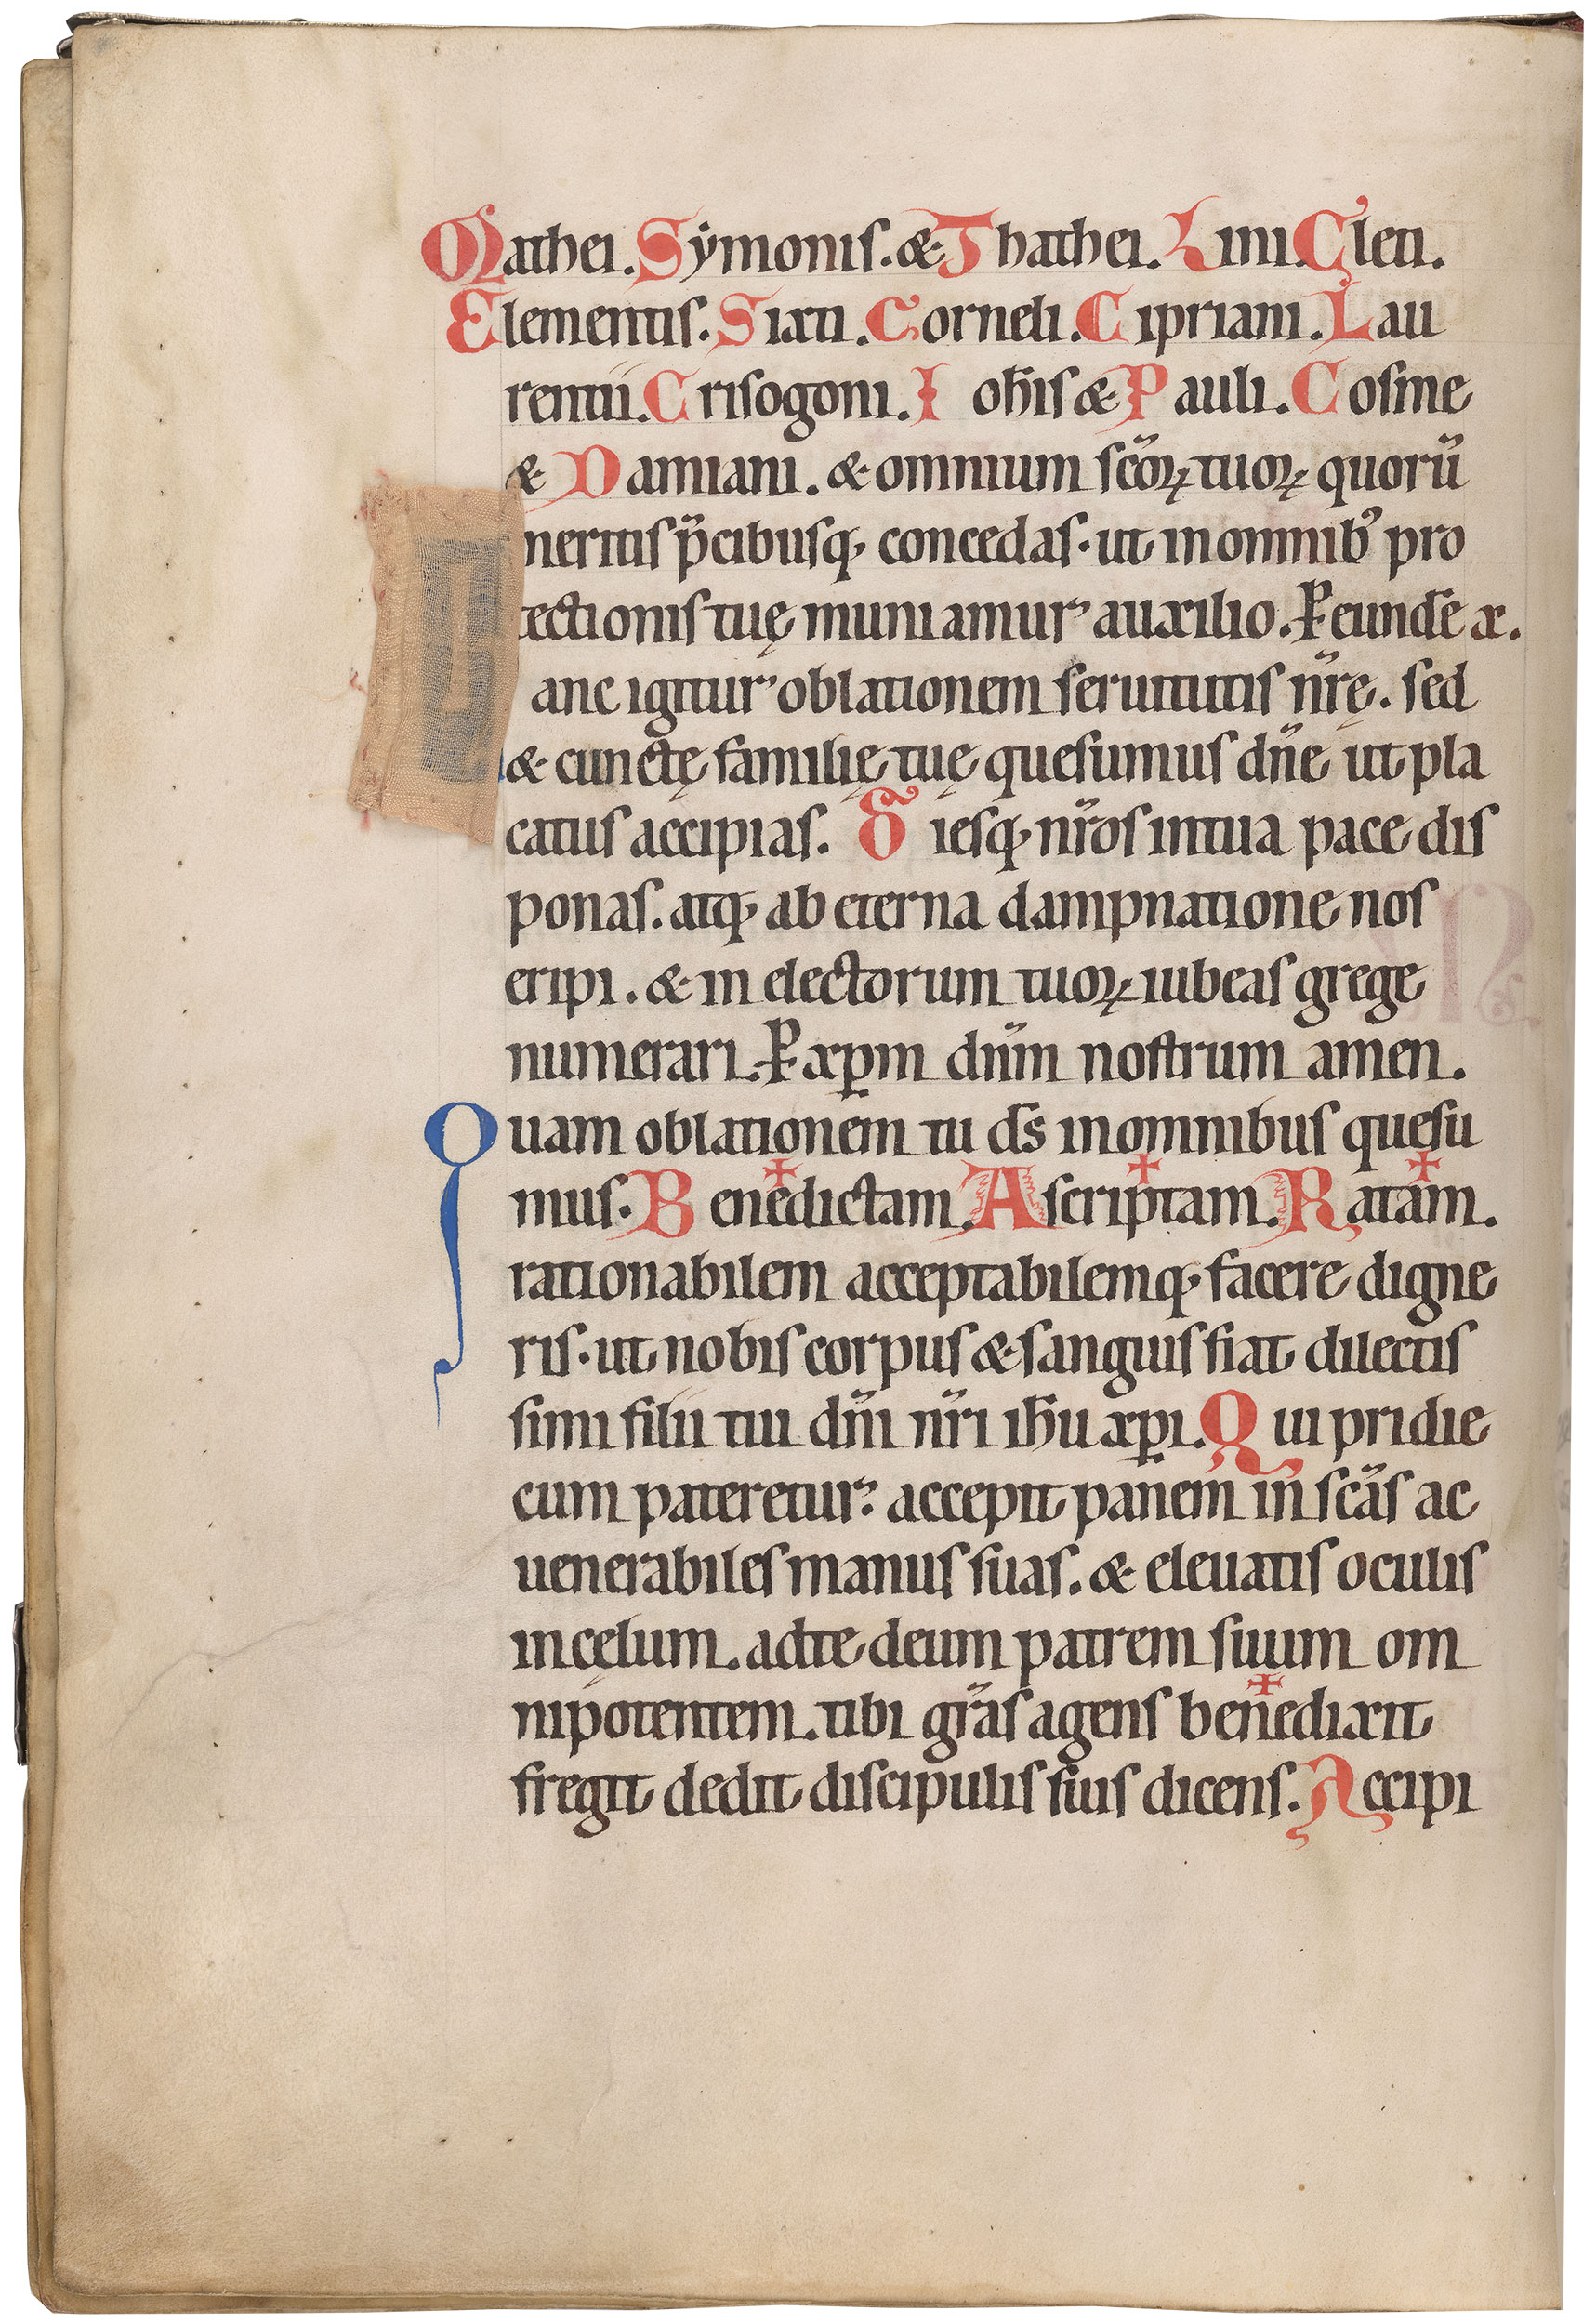 Mathei. Symonis. & Thathei. Lini. Cleti.
Elementis. Sixti. Corneli. Cipriani. Lau
rentii. Crisogoni. Ioh̅is & Pauli. Cosme
& Damiani. & omnium sc̅oꝝ tuoꝝ quorū
meritis p̅cibusq; concedas· ut in omnibꝰ pro
tectionis tuę muniamur auxilio. Ꝑ eunde̅ x.
anc igitur oblationem seruitutis nr̅ę. sed
& cunctę familię tuę quesumus dn̅e ut pla
catus accipias. Diesq; nr̅os in tua pace dis
ponas. atq; ab eterna dampnatione nos
eripi. & in electorum tuoꝝ iubeas grege
numerari. Ꝑ xp̅m dn̅m nostrum amen.
Quam oblationem tu ds̅ in omnibus quesu
mus· Bene✝dictam. Ascrip✝tam. Rata✝m.
rationabilem acceptabilemq; facere digne
ris· ut nobis corpus & sanguis fiat dilectis
simi filii tui dn̅i nr̅i ih̅u xp̅i. Qui pridie
cum pateretur: accepit panem in sc̅as ac
uenerabiles manus suas. & eleuatis oculis
in cęlum. ad te deum patrem suum om
nipotentem. tibi gr̅as agens bene✝dixit
fregit dedit discipulis suis dicens. Accipi